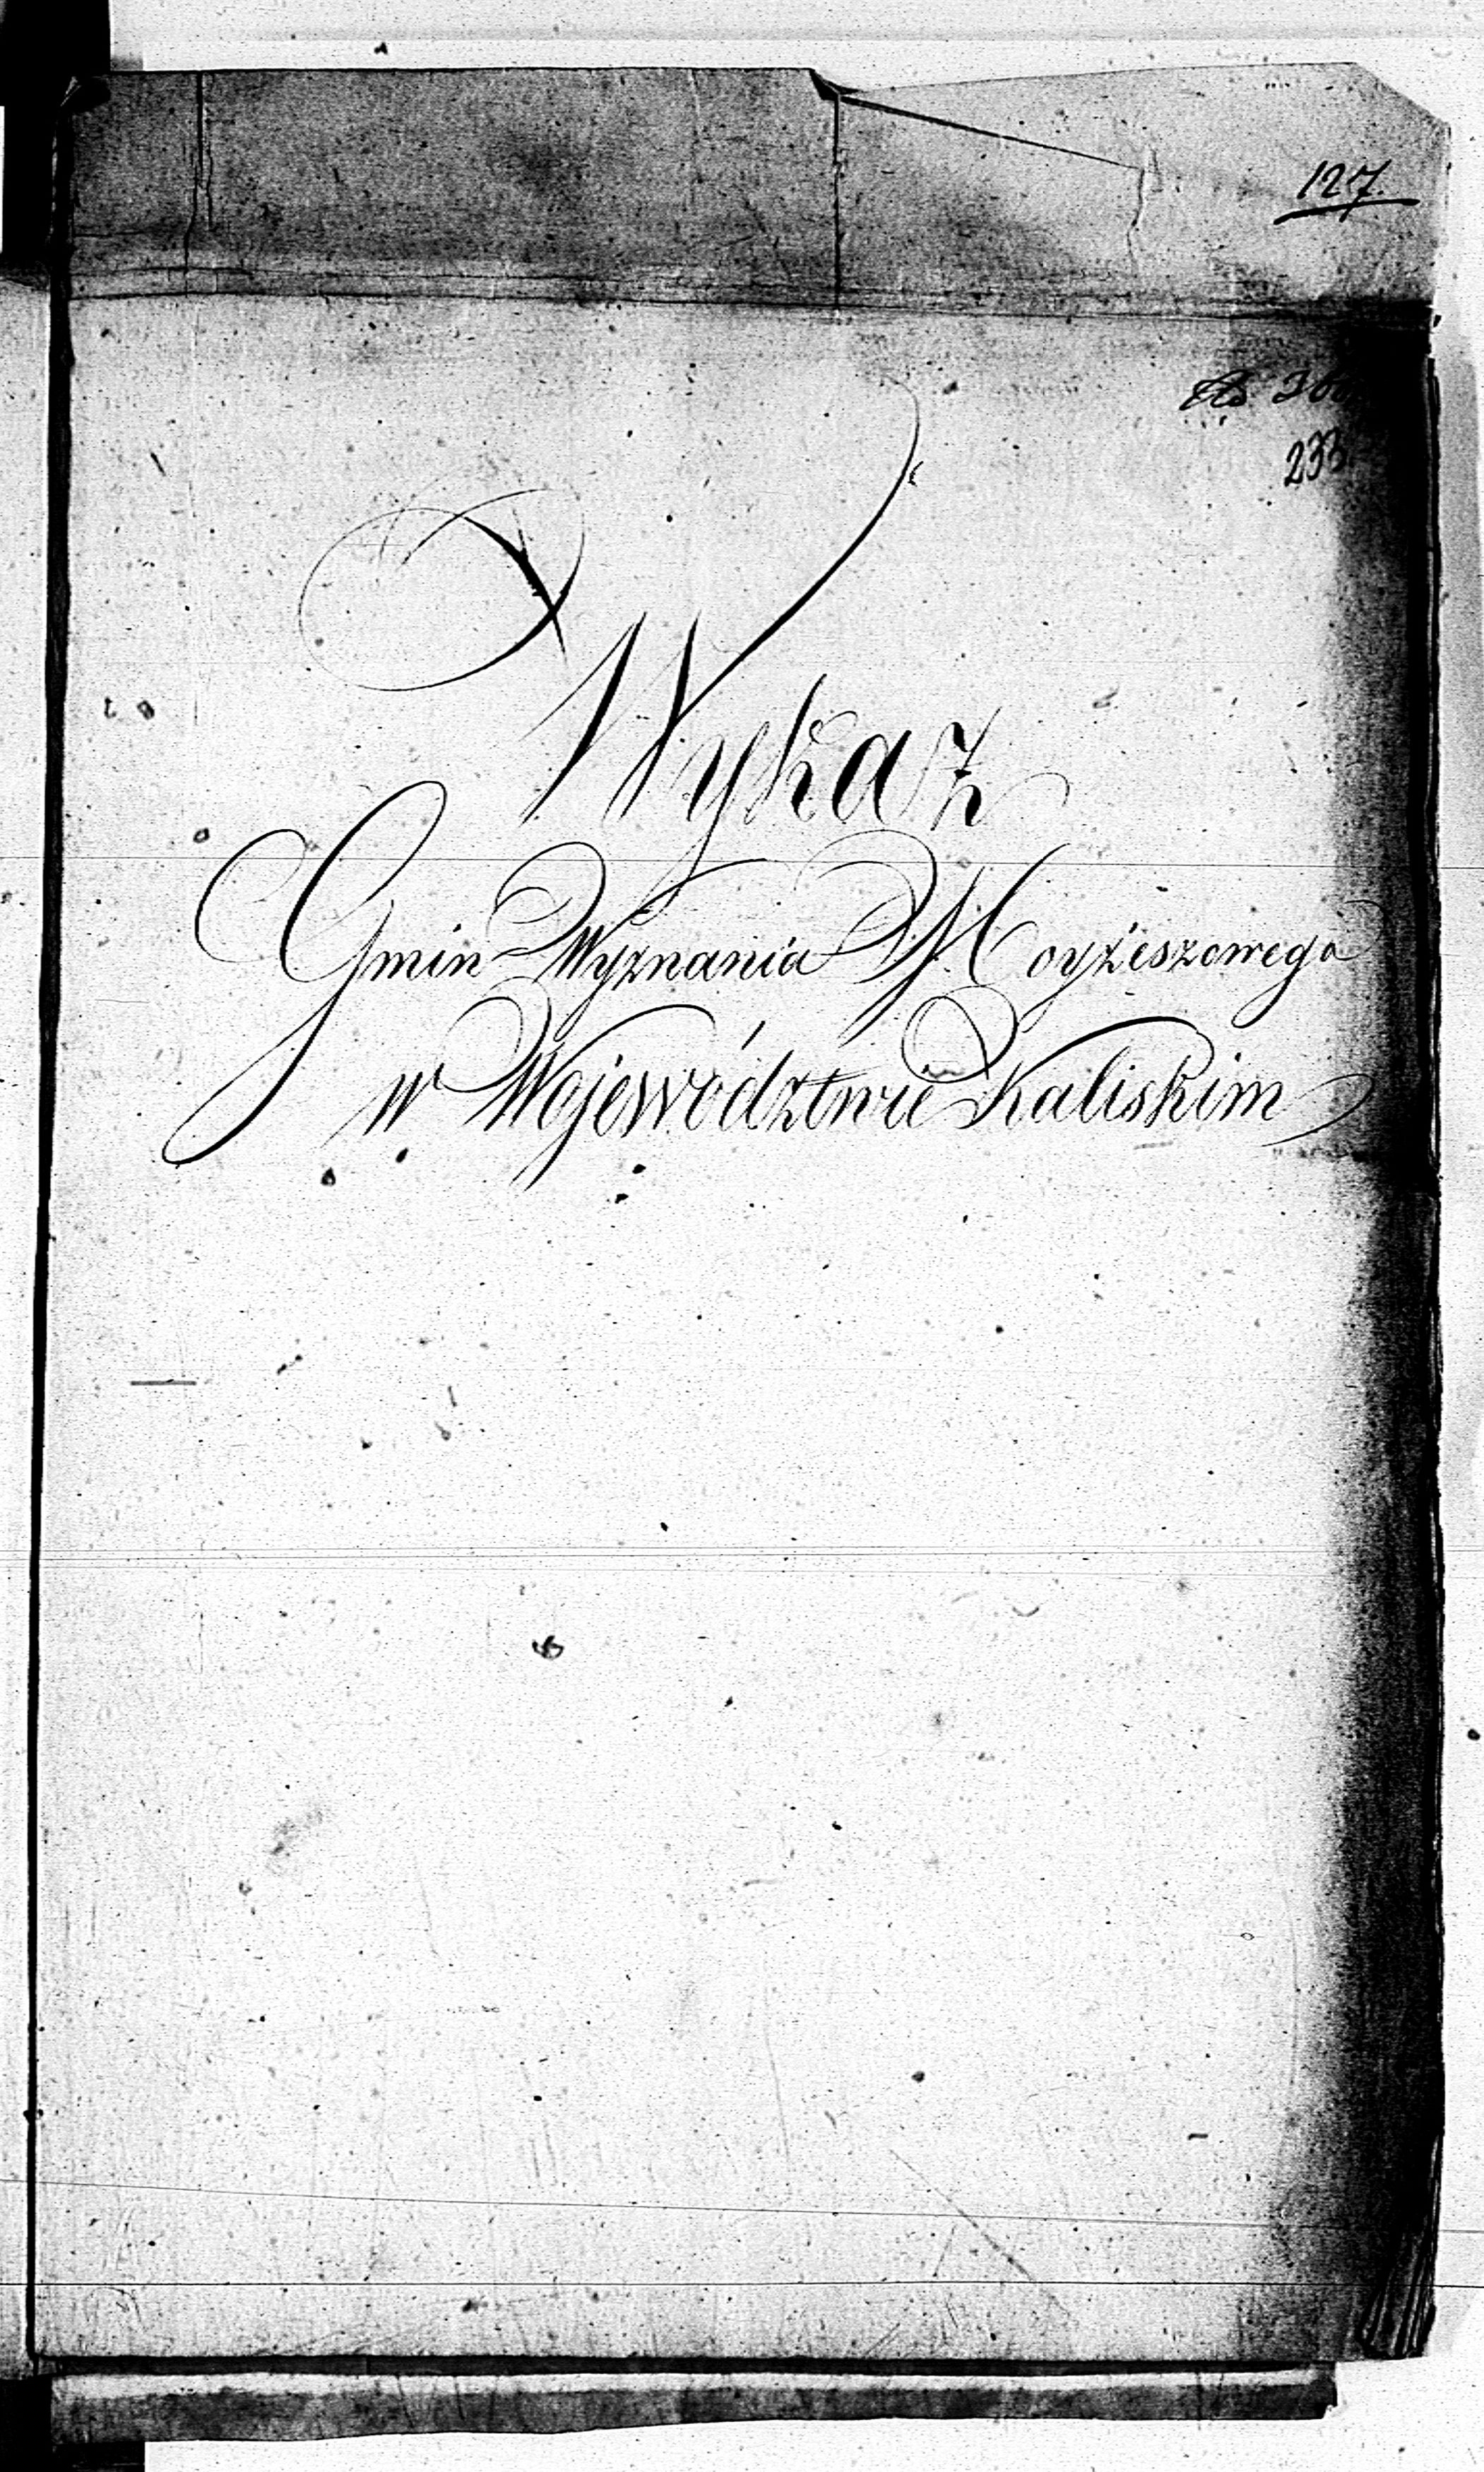 127.
233.
Wykaz
Gmin Wyznania Moyżeszowego
w Województwie Kaliskim